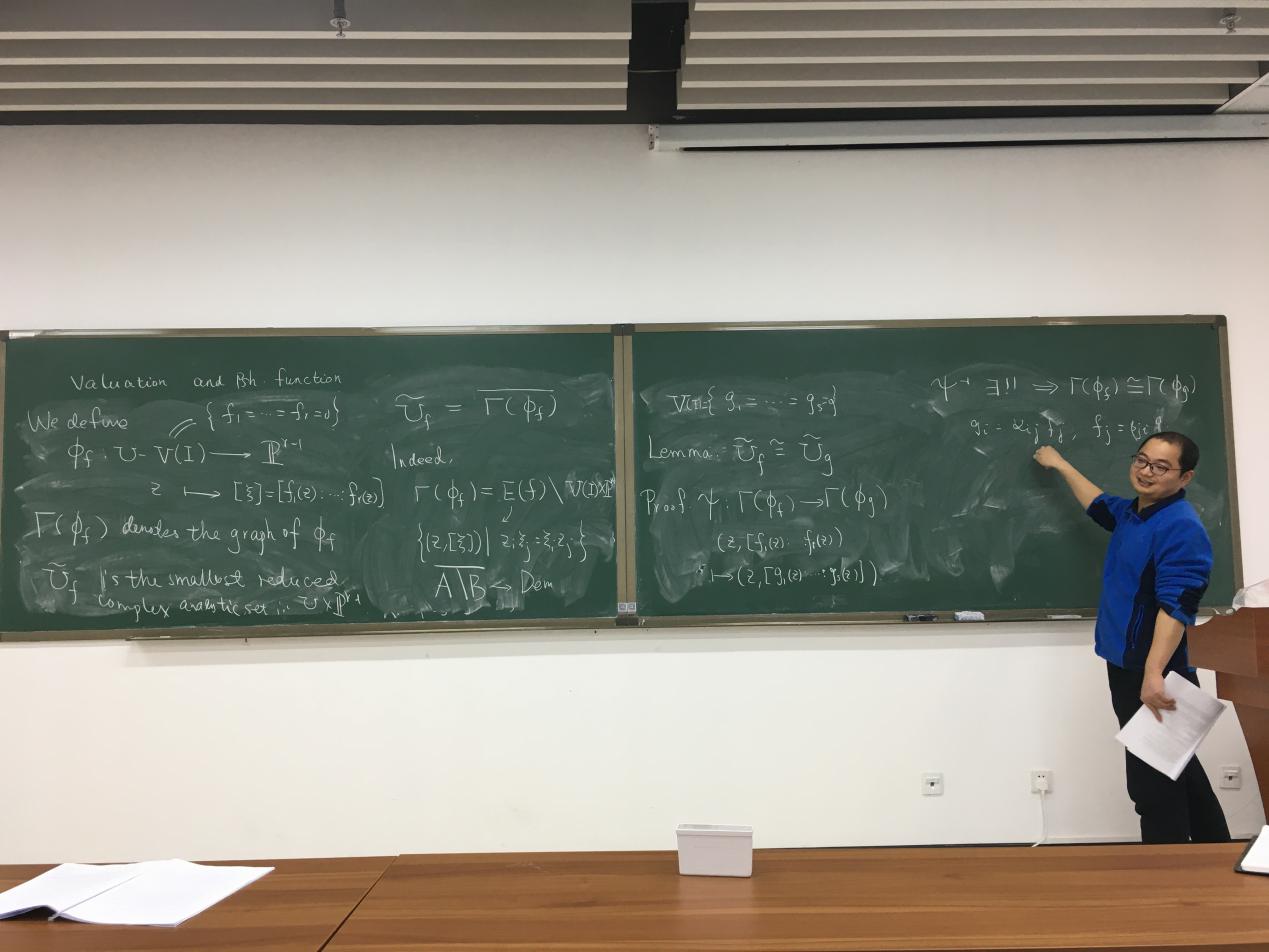 Valuation and Psh. function
We define
{f₁ = ⋯ = fᵣ = 0}
ϕ_f : U - V(I) ⟶ ℙ^{r-1}
z ⟼ [ξ] = [f₁(z) : ⋯ : fᵣ(z)]
Γ(ϕ_f) denotes the graph of ϕ_f
Ũ_f is the smallest reduced
complex analytic set in U × ℙ^{r-1}
Ũ_f = \overline{Γ(ϕ_f)}
Indeed,
Γ(ϕ_f) = E(f) \ V(I) × ℙ
{(z,[ξ]) | z_i ξ_j = ξ_i z_j}
\overline{A\B} → Dem
V(I) = {g₁ = ⋯ = g_s = 0}
Lemma: Ũ_f ≅ Ũ_g
Proof. ψ : Γ(ϕ_f) → Γ(ϕ_g)
(z, [f₁(z) : ⋯ : fᵣ(z)])
⟼ (z, [g₁(z) : ⋯ : g_s(z)])
ψ⁻¹ ∃!! ⟹ Γ(ϕ_f) ≅ Γ(ϕ_g)
g_i = α_{ij} f_j, f_j =